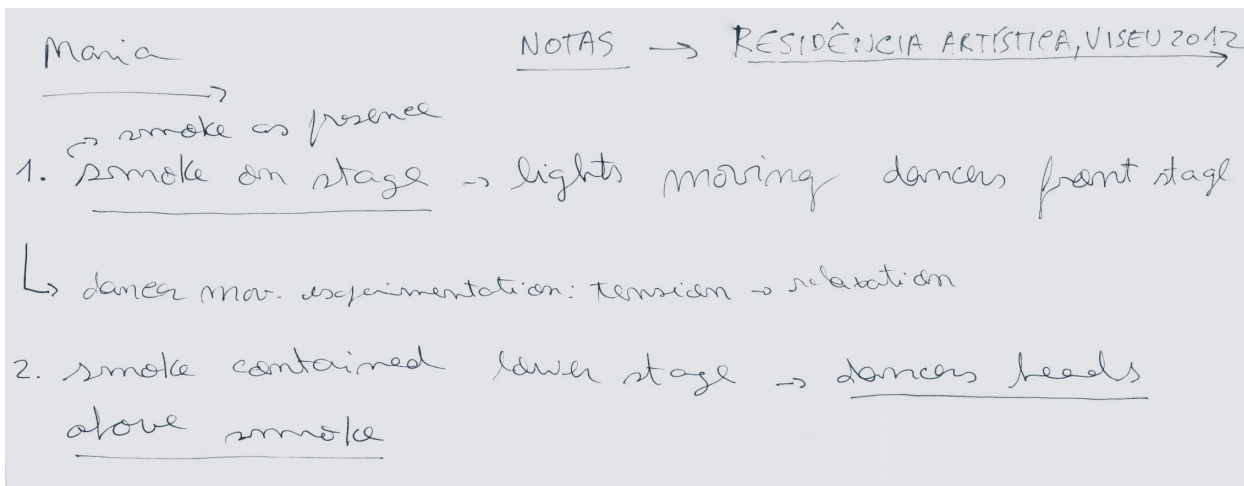 Maria
NOTAS → RESIDÊNCIA ARTÍSTICA, VISEU 2012
↪ smoke as presence
1. smoke on stage → lights moving dancers front stage
↳ dancer mov. experimentation: tension → relaxation
2. smoke contained lower stage → dancers heads
above smoke